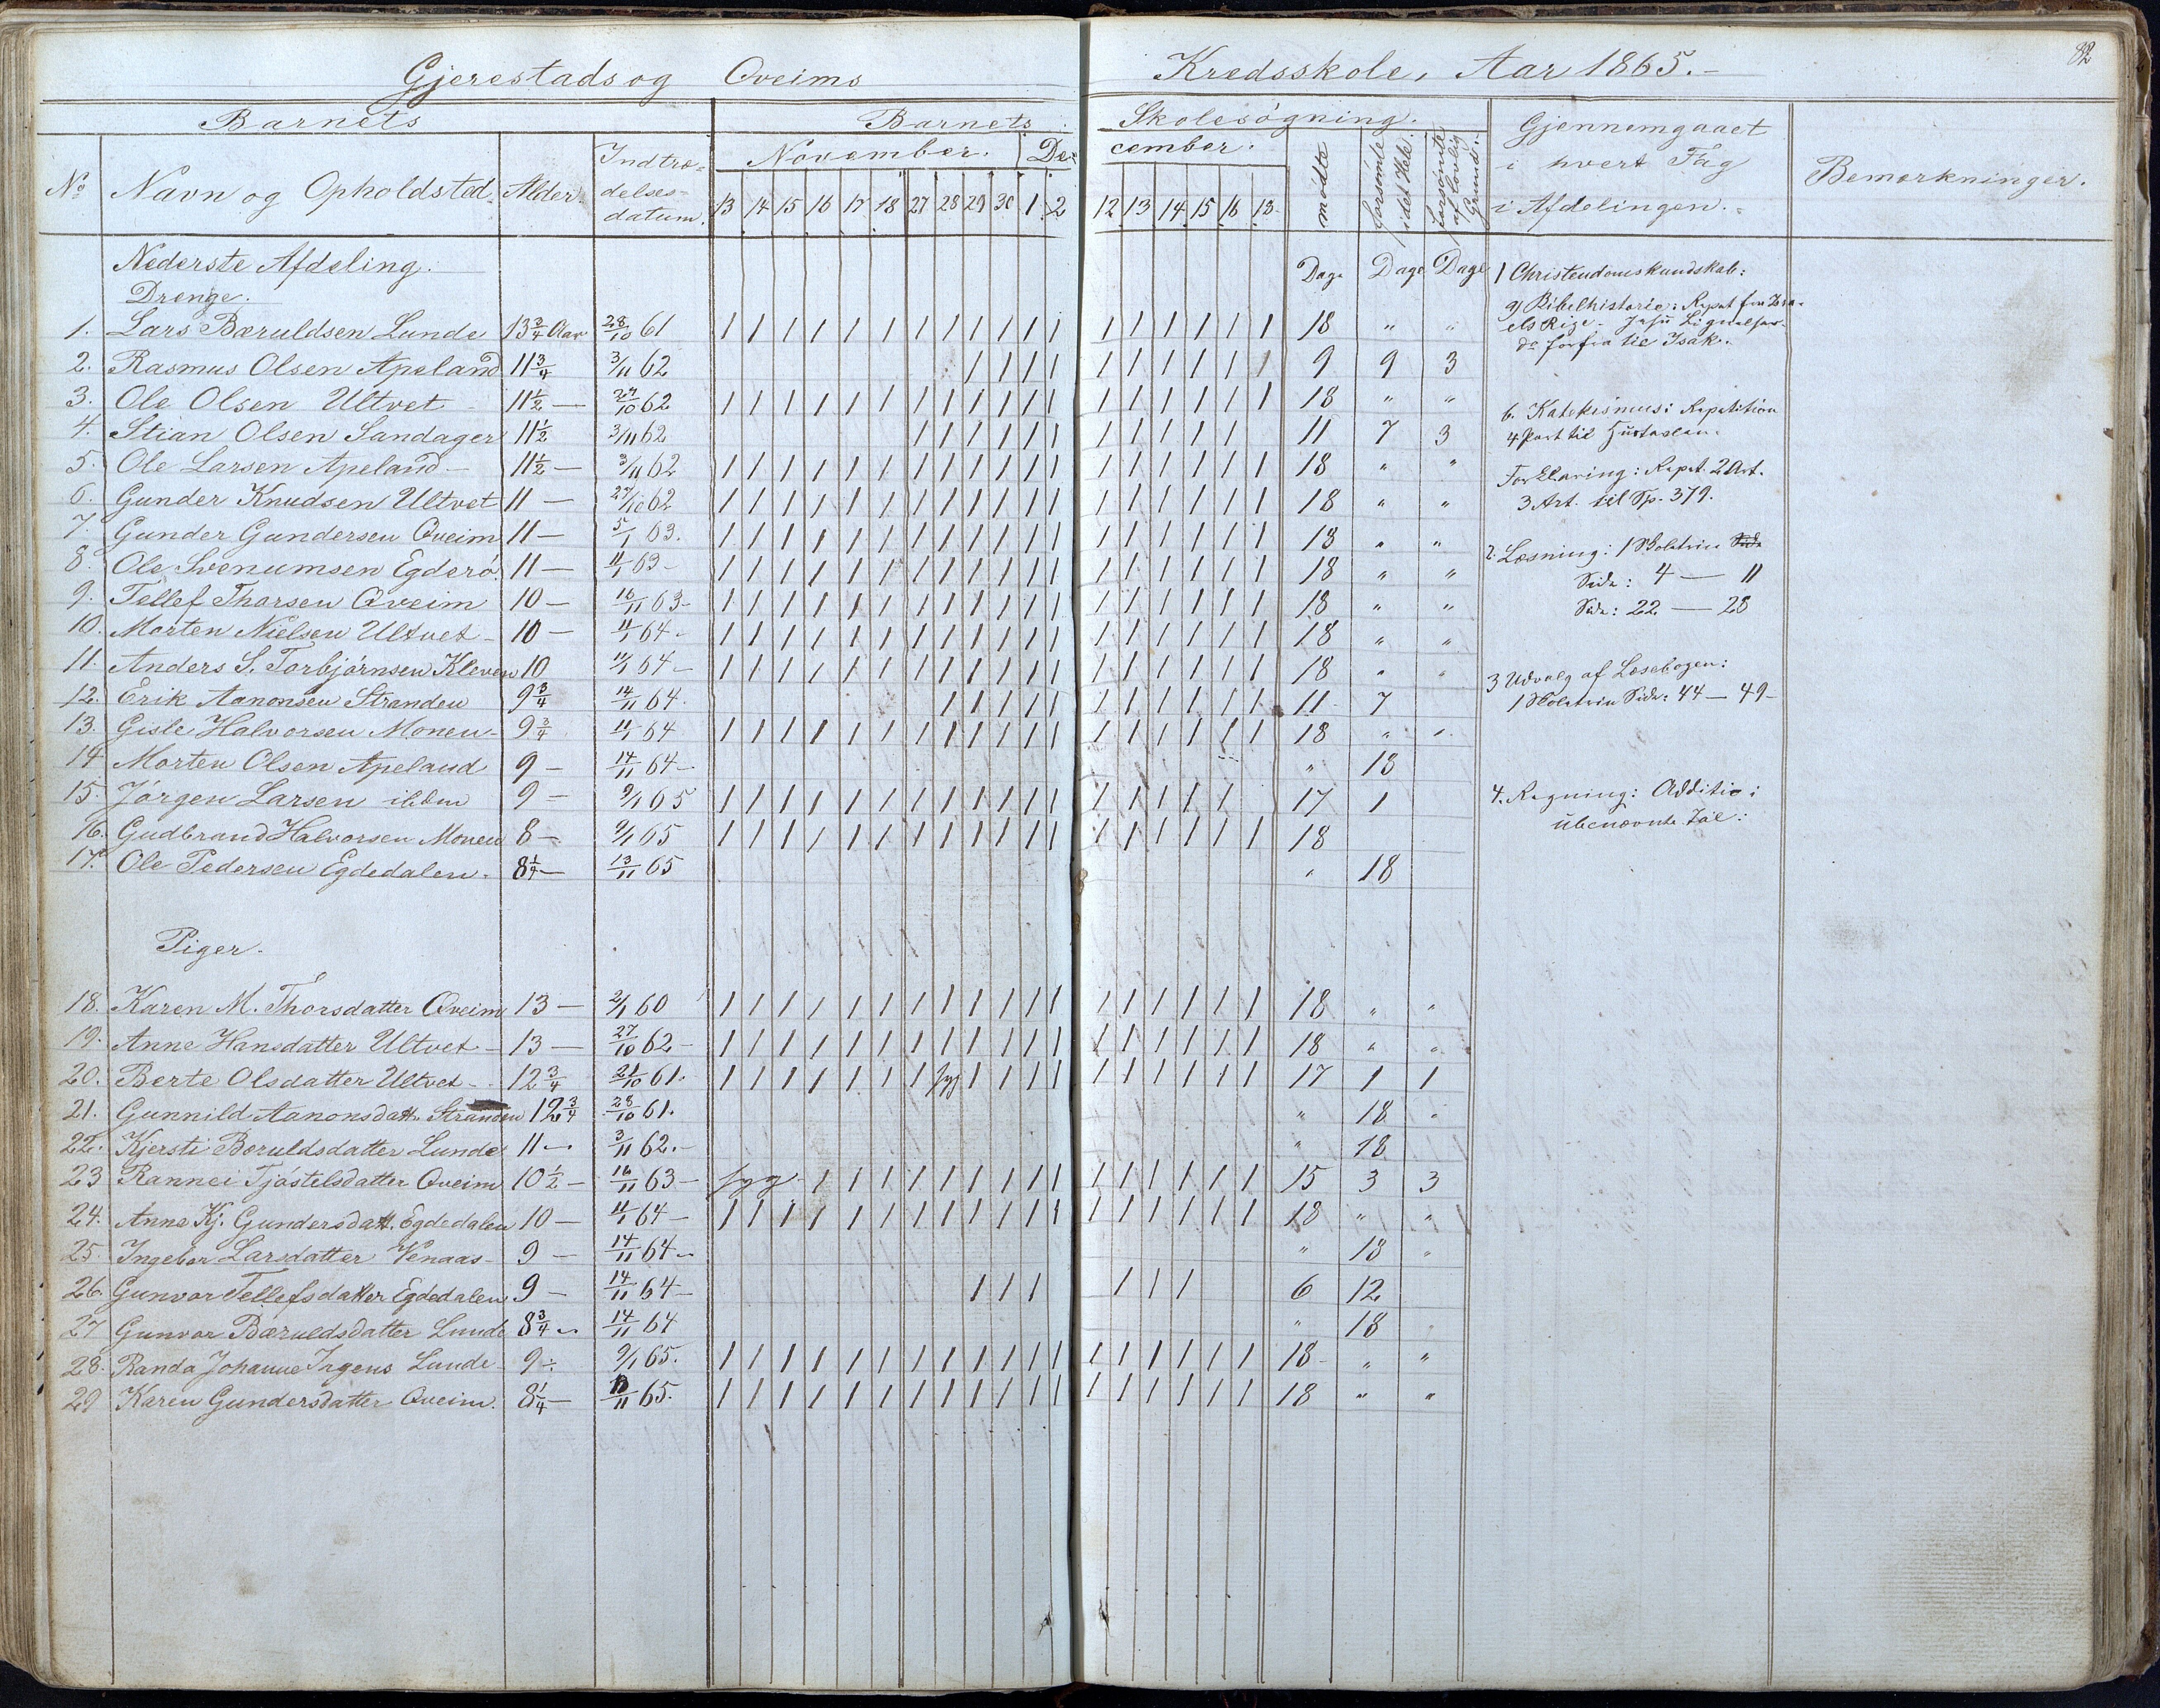 82
Gjerestads og Qveims Kredsskole, Aar 1865.-
Barnets Barnets Skolesøgning. Gjennemgaaet i hvert Fag i Afdelingen. Bemærkninger.
No Navn og Opholdsted. Alder. Indtrædelsesdatum. November. December. mødte forsømte i det Hele. forsømte af lovlig Grund.
13 14 15 16 17 18 27 28 29 30 1 2 12 13 14 15 16 18
Nederste Afdeling. Dage Dage Dage
Drenge.
1. Lars Bæruldsen Lunde 13 3/4 Aar 28/10 61 | | | | | | | | | | | | | | | | | | 18 " "
2. Rasmus Olsen Apeland 11 3/4 3/11 62 | | | | | | | | | | 9 9 3
3. Ole Olsen Ultvet - 11 1/2 — 27/10 62 | | | | | | | | | | | | | | | | | | 18 " "
4. Stian Olsen Sandager 11 1/2 3/11 62 | | | | | | | | | | | 11 7 3
5. Ole Larsen Apeland - 11 1/2 — 3/11 62 | | | | | | | | | | | | | | | | | | 18 " "
6. Gunder Knudsen Ultvet 11 — 27/10 62 | | | | | | | | | | | | | | | | | | 18 " "
7. Gunder Gundersen Qveim 11 — 5/1 63. | | | | | | | | | | | | | | | | | | 18 " "
8. Ole Svenumsen Egderø. 11 — 11/1 63 - | | | | | | | | | | | | | | | | | | 18 " "
9. Tellef Thorsen Qveim 10 — 16/11 63 - | | | | | | | | | | | | | | | | | | 18 " "
10. Morten Nielsen Ultvet - 10 — 11/1 64 - | | | | | | | | | | | | | | | | | | 18 " "
11. Anders S. Torbjørnsen Kleven 10 11/1 64 - | | | | | | | | | | | | | | | | | | 18 " "
12. Erik Aanonsen Stranden 9 3/4 14/11 64. | | | | | | | | | | | 11 7
13. Gisle Halvorsen Monen - 9 3/4 11/1 64 | | | | | | | | | | | | | | | | | | 18 " "
14 Morten Olsen Apeland 9 — 14/11 64 - " 18
15. Jørgen Larsen ibidm 9 — 9/1 65 | | | | | | | | | | | | | | | | | 17 1
16. Gudbrand Halvorsen Monen 8 — 9/1 65 | | | | | | | | | | | | | | | | | | 18
17. Ole Pedersen Egdedalen. 8 1/4 — 13/11 65 " 18
Piger.
18. Karen M. Thorsdatter Qveim 13 — 2/1 60 | | | | | | | | | | | | | | | | | | 18 " "
19. Anne Hansdatter Ultvet - 13 — 27/10 62 - | | | | | | | | | | | | | | | | | | 18 " "
20. Berte Olsdatter Ultvet - 12 3/4 21/10 61. | | | | | | | syg | | | | | | | | | | 17 1 1
21. Gunnild Aanonsdatt. Stranden 12 3/4 28/10 61. " 18 "
22. Kjersti Bæruldsdatter Lunde 11 — 3/11 62. - " 18
23 Rannei Tjøstelsdatter Qveim 10 1/2 - 16/11 63 - syg - | | | | | | | | | | | | | | | 15 3 3
24. Anne Kj. Gundersdatt. Egdedalen 10 — 11/1 64 - | | | | | | | | | | | | | | | | | | 18 " "
25. Ingebor Larsdatter Venaas - 9 — 14/11 64 - " 18 "
26. Gunvor Tellefsdatter Egdedalen 9 — 14/11 64 - | | | | | | 6 12
27 Gunvor Bæruldsdatter Lunde 8 3/4 - 14/11 64 " 18
28. Randa Johanne Irgens Lunde - 9 - 9/1 65. | | | | | | | | | | | | | | | | | | 18 - " "
29 Karen Gundersdatter Qveim. 8 1/4 — 13/11 65. | | | | | | | | | | | | | | | | | | 18 " "
1 Christendomskundskab:
a) Bibelhistorie: Repet fra Isra-
els Rige - Jesu Lignelser.
do forfra til Isak.
b. Katekismus: Repetition
4 Part til Hustavlen.
Forklaring: Repet. 2 Art.
3 Art. til Sp. 379.
2. Læsning: 1 Skoletrin Side
Side: 4 — 11
Side: 22 — 28
3 Udvalg af Læsebogen:
1 Skoletrin Side: 44 — 49 -
4. Regning: Additio:
ubenævnte Tal: